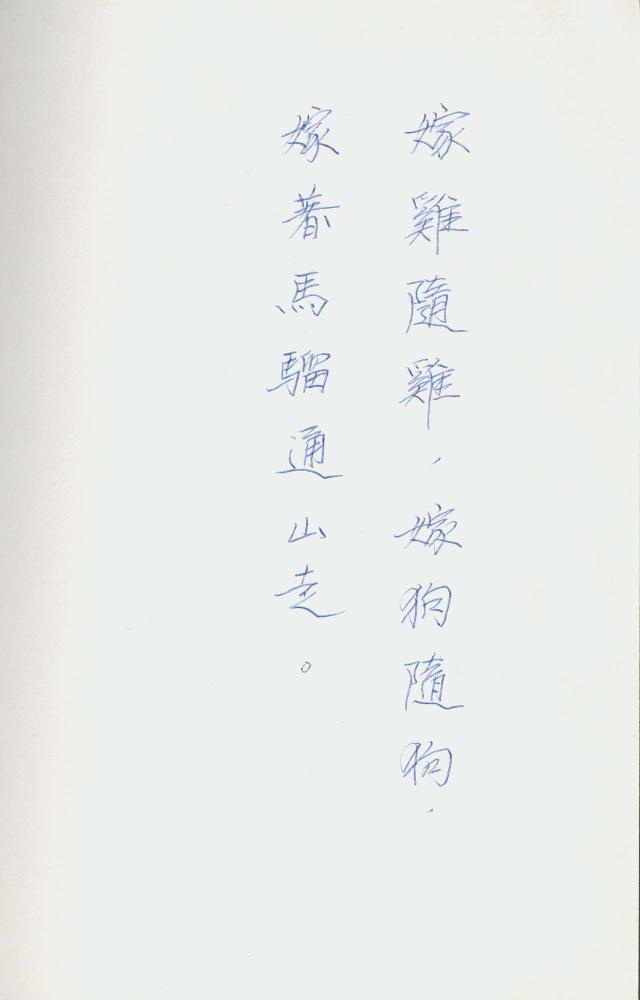 嫁雞隨雞，嫁狗隨狗，
嫁着馬騮通山走。